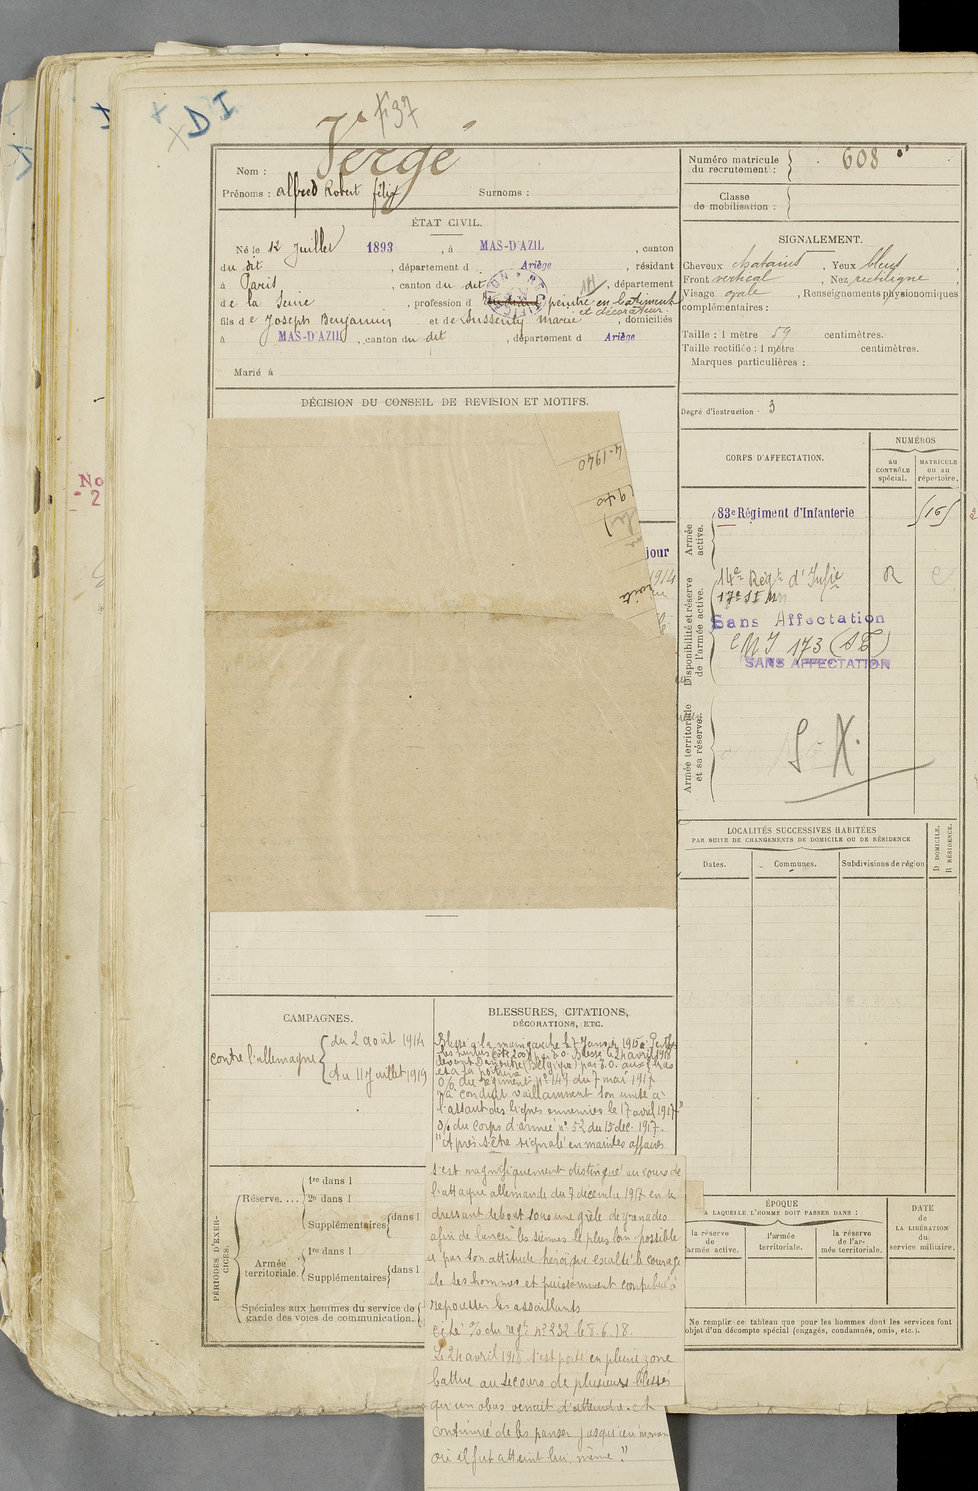 + D I
F 37
Nom : Vergé
Prénoms : alfred Robert félix Surnoms :
ÉTAT CIVIL.
Né le 12 Juillet 1893, à MAS-D'AZIL, canton
du dit, département d Ariège, résidant
à Paris, canton du dit 14, département
de la Seine, profession d peintre en batiment
et décorateur.
fils de Joseph Benjamin et de Dusseuty marie, domiciliés
à MAS-D'AZIL, canton du dit, département d Ariège
Marié à
DÉCISION DU CONSEIL DE REVISION ET MOTIFS.
4-1940
1940
jour
1914
CAMPAGNES.
contre l'allemagne { du 2 août 1914
au 11 Juillet 1919
BLESSURES, CITATIONS,
DÉCORATIONS, ETC.
Blessé à la main gauche le 7 Janvier 1915 à Perthes
les hurlus (côte 200) par é.o. Blessé le 24 avril 1918
devant (Belgique) par é.o. aux bras
et à la poitrine
O% du régiment n° 149 du 7 mai 1917
"a conduit vaillamment son unité à
l'assaut des lignes ennemies le 17 avril 1917"
O% du corps d'armée n° 52 du 15 dec. 1917.
"Après s'être signalé en maintes affaires
s'est magnifiquement distingué au cours de
l'attaque allemande du 7 décembre 1917 en se
dressant debout sous une grêle de grenades
afin de lancer les siennes le plus loin possible
a par son attitude héroïque exalté le courage
de ses hommes et puissamment contribué à
repousser les assaillants
Cité O% du régt n° 232 le 8.6.18.
Le 24 avril 1918 s'est porté en pleine zone
battue au secours de plusieurs blessés
qu'un obus venait d'atteindre. a
continué de les panser jusqu'au moment
où il fut atteint lui même."
PÉRIODES D'EXERCICES.
Réserve.... { 1re dans l
2e dans l
Supplémentaires { dans l
Armée territoriale. { 1re dans l
Supplémentaires { dans l
Spéciales aux hommes du service de
garde des voies de communication.
Numéro matricule
du recrutement : } 608
Classe
de mobilisation : }
SIGNALEMENT.
Cheveux chatains, Yeux bleus,
Front vertical, Nez rectiligne,
Visage ovale, Renseignements physionomiques
complémentaires :
Taille : 1 mètre 59 centimètres.
Taille rectifiée : 1 mètre centimètres.
Marques particulières :
Degré d'instruction : 3
CORPS D'AFFECTATION.
NUMÉROS
au
CONTRÔLE
spécial.
MATRICULE
ou au
répertoire.
Armée
active.
83e Régiment d'Infanterie
Disponibilité et réserve
de l'armée active.
14e Régt d'Infie
17e SIM
Sans Affectation
CMI 173 (SE)
SANS AFFECTATION
Armée territoriale
et sa réserve.
S X.
LOCALITÉS SUCCESSIVES HABITÉES
PAR SUITE DE CHANGEMENTS DE DOMICILE OU DE RÉSIDENCE
D DOMICILE.
R RÉSIDENCE.
Dates.
Communes.
Subdivisions de région
ÉPOQUE
A LAQUELLE L'HOMME DOIT PASSER DANS :
la réserve
de
armée active.
l'armée
territoriale.
la réserve
de l'ar-
mée territoriale.
DATE
de
LA LIBÉRATION
du
service militaire.
Ne remplir ce tableau que pour les hommes dont les services font
objet d'un décompte spécial (engagés, condamnés, omis, etc.).
No
2